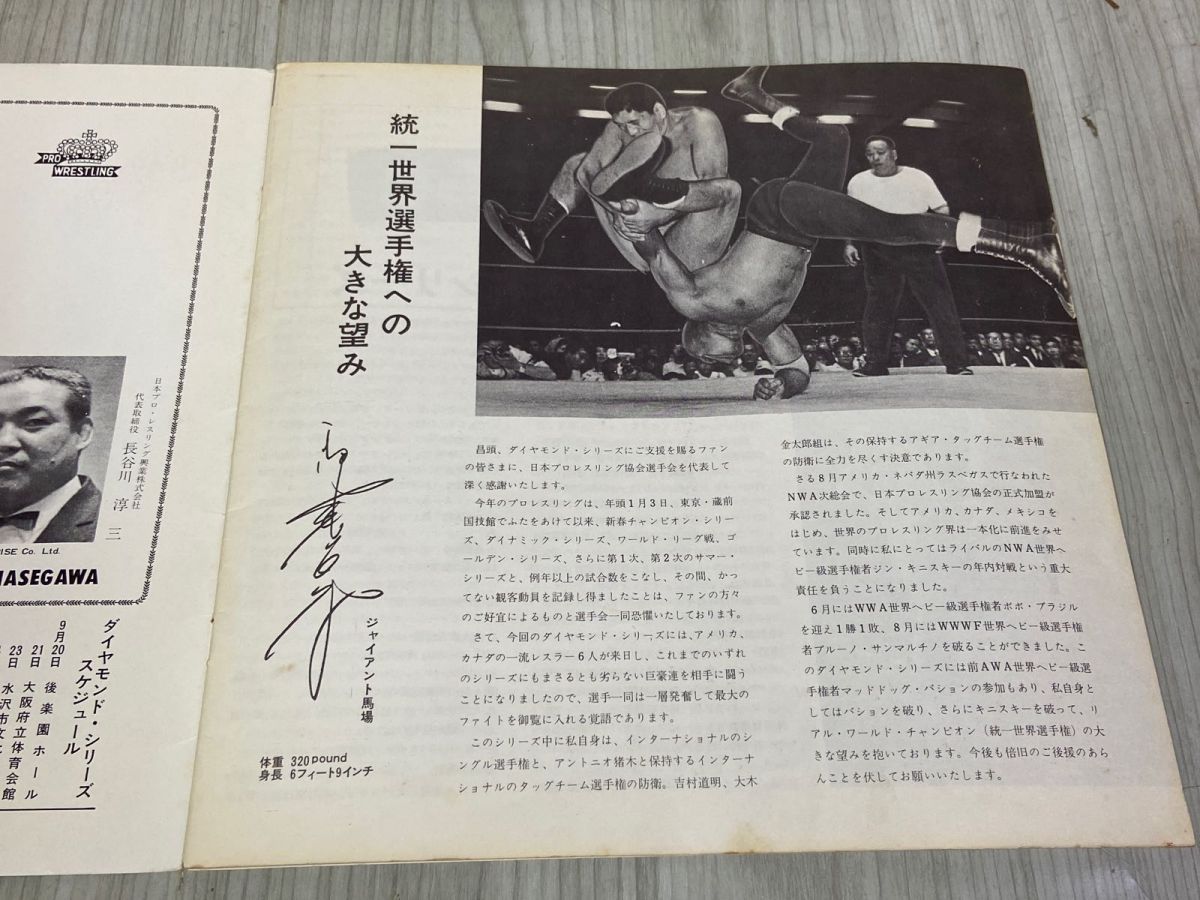 統一世界選手権への
大きな望み
ジャイアント馬場
体重 320pound
身長 6フィート9インチ
冒頭、ダイヤモンド・シリーズにご支援を賜るファン
の皆さまに、日本プロレスリング協会選手会を代表して
深く感謝いたします。
今年のプロレスリングは、年頭1月3日、東京・蔵前
国技館でふたをあけて以来、新春チャンピオン・シリー
ズ、ダイナミック・シリーズ、ワールド・リーグ戦、ゴ
ールデン・シリーズ、さらに第1次、第2次のサマー・
シリーズと、例年以上の試合数をこなし、その間、かっ
てない観客動員を記録し得ましたことは、ファンの方々
のご好宜によるものと選手会一同恐懼いたしております。
さて、今回のダイヤモンド・シリーズには、アメリカ、
カナダの一流レスラー6人が来日し、これまでのいずれ
のシリーズにもまさるとも劣らない巨豪連を相手に闘う
ことになりましたので、選手一同は一層発奮して最大の
ファイトを御覧に入れる覚語であります。
このシリーズ中に私自身は、インターナショナルのシ
ングル選手権と、アントニオ猪木と保持するインターナ
ショナルのタッグチーム選手権の防衛。吉村道明、大木
金太郎組は、その保持するアギア・タッグチーム選手権
の防衛に全力を尽くす決意であります。
さる8月アメリカ・ネバダ州ラスベガスで行なわれた
NWA次総会で、日本プロレスリング協会の正式加盟が
承認されました。そしてアメリカ、カナダ、メキシコを
はじめ、世界のプロレスリング界は一本化に前進をみせ
ています。同時に私にとってはライバルのNWA世界ヘ
ビー級選手権者ジン・キニスキーの年内対戦という重大
責任を負うことになりました。
6月にはWWA世界ヘビー級選手権者ボボ・ブラジル
を迎え1勝1敗、8月にはWWWF世界ヘビー級選手権
者ブルーノ・サンマルチノを破ることができました。こ
のダイヤモンド・シリーズには前AWA世界ヘビー級選
手権者マッドドッグ・バションの参加もあり、私自身と
してはバションを破り、さらにキニスキーを破って、リ
アル・ワールド・チャンピオン(統一世界選手権)の大
きな望みを抱いております。今後も倍旧のご後援のあら
んことを伏してお願いいたします。
PRO
WRESTLING
日本プロ・レスリング興業株式会社
代表取締役 長谷川 淳三
RISE Co. Ltd.
HASEGAWA
ダイヤモンド・シリーズ
スケジュール
9月20日 後楽園ホール
21日 大阪府立体育会館
23日 水沢市文